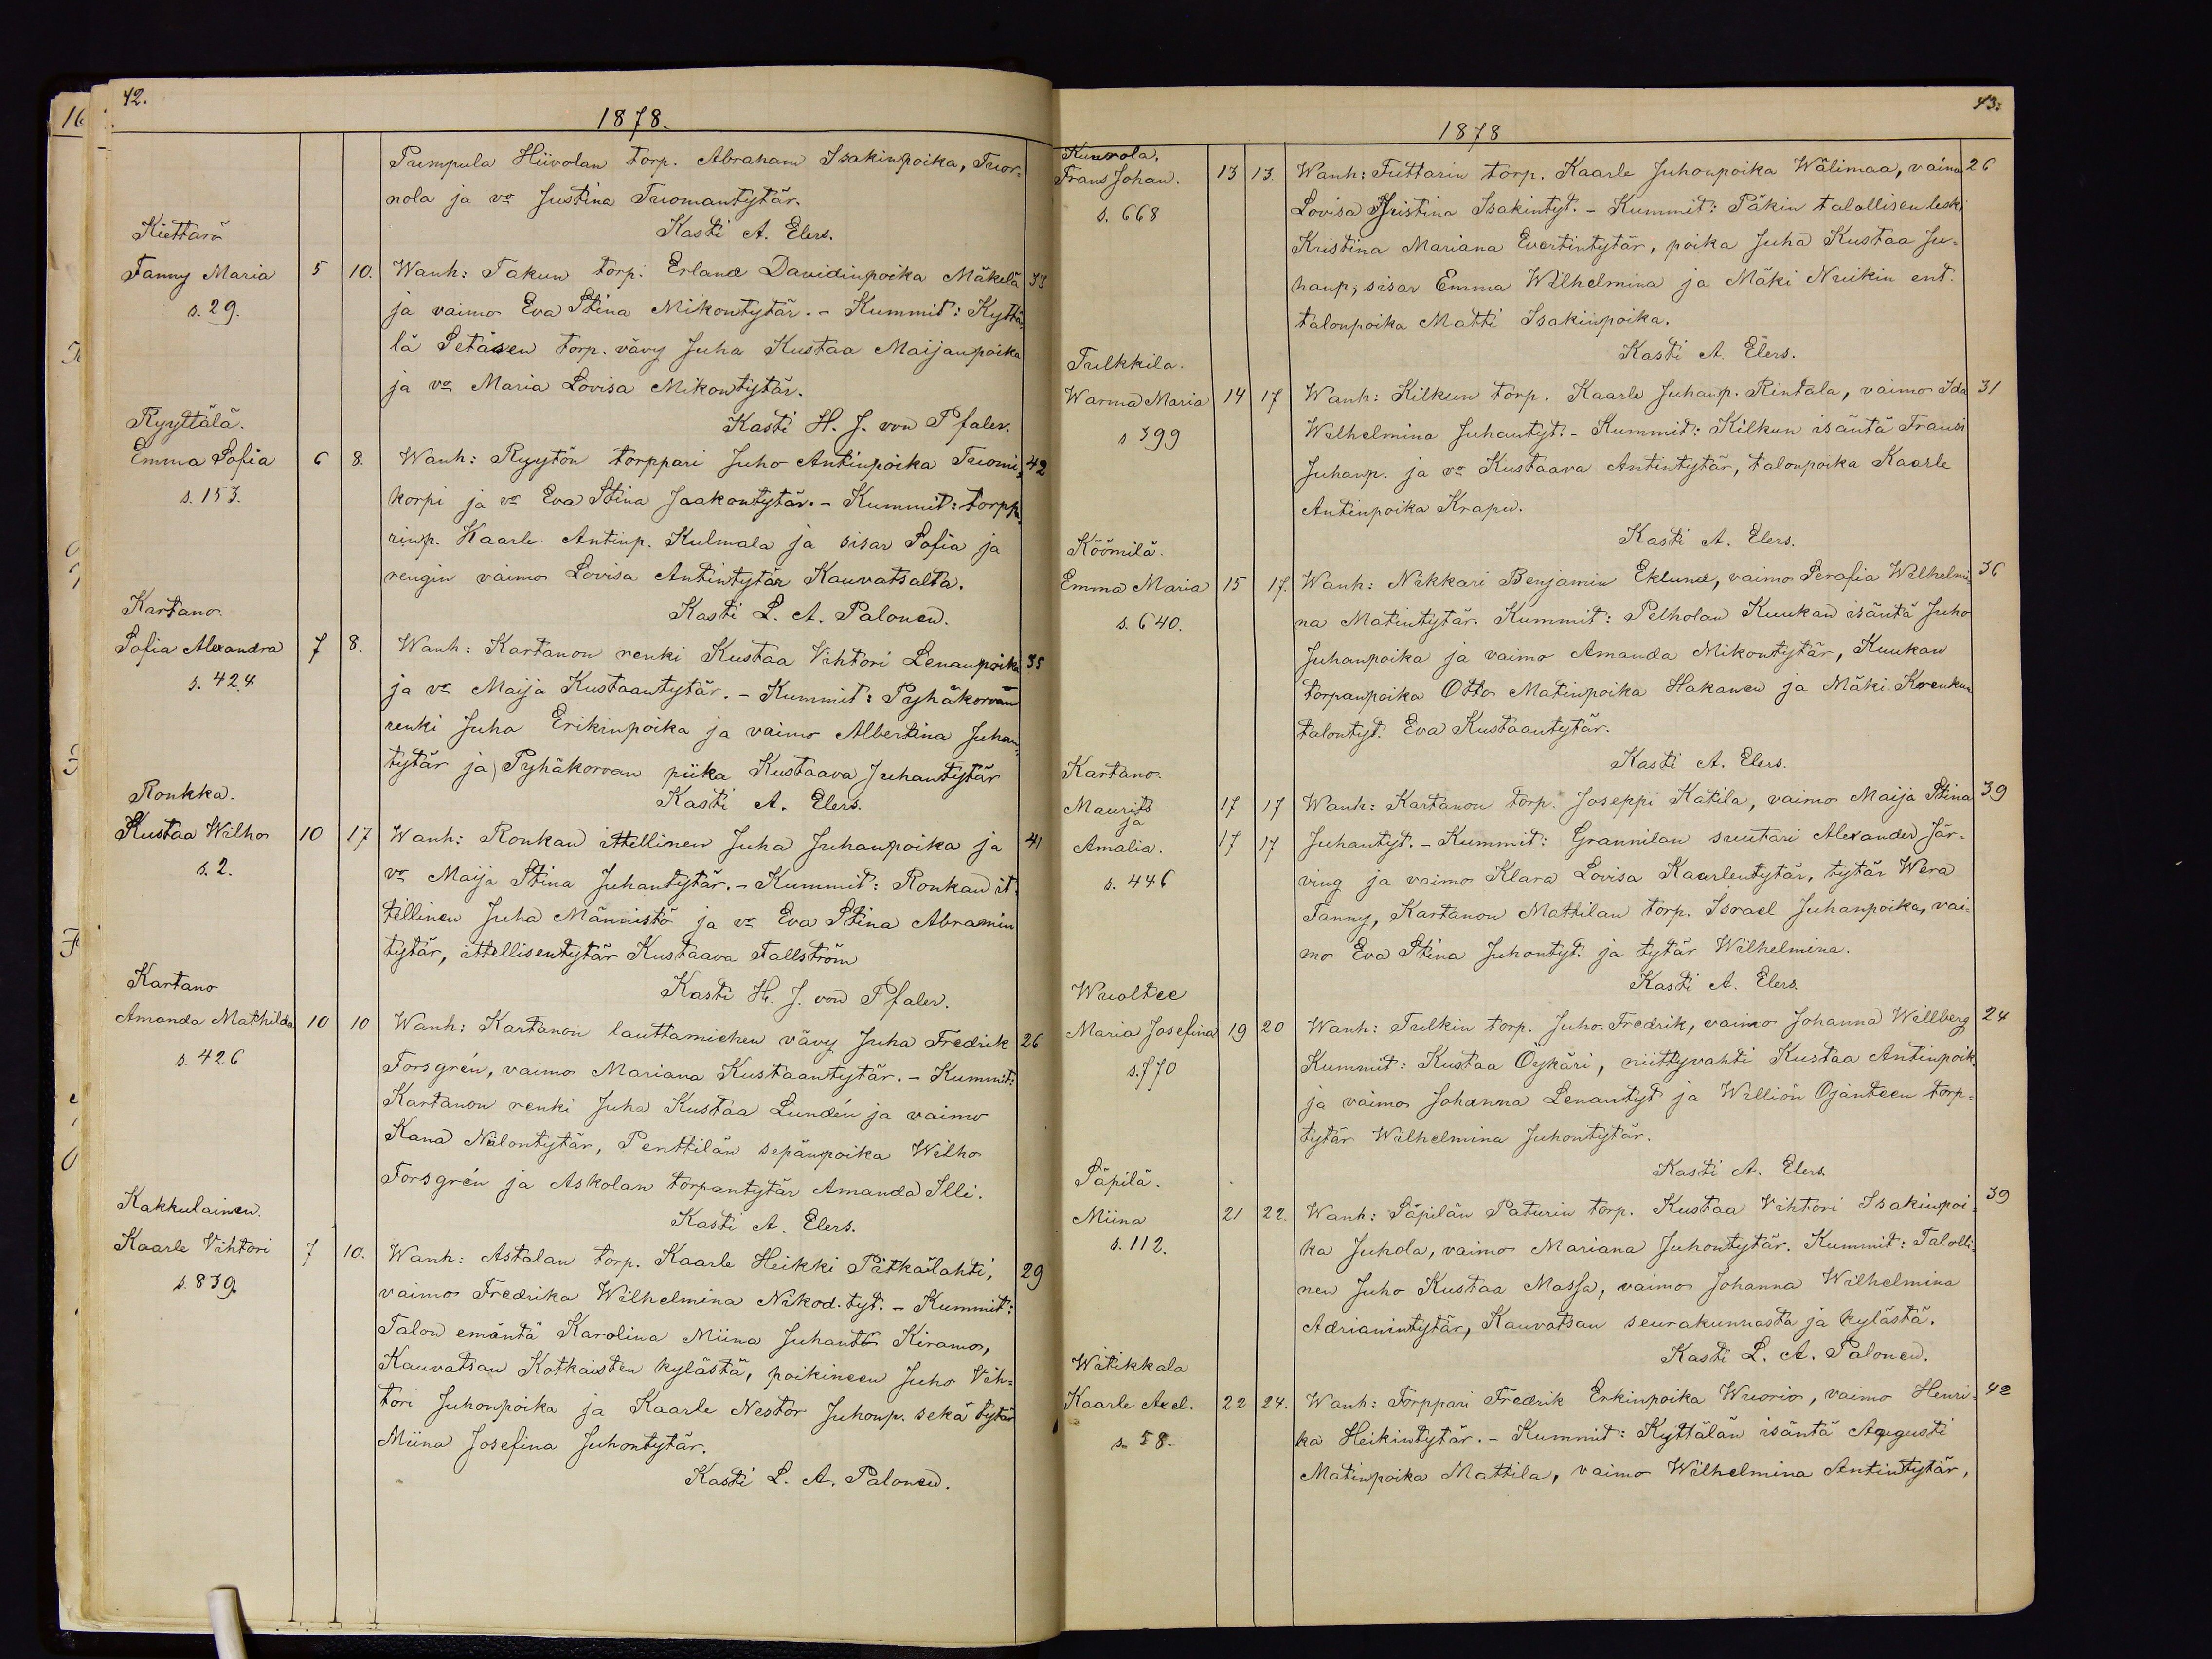 42.
1878.
Pumpula Hiivolan torp. Abraham Isakinpoika, Tuor-
nola ja vo Justina Tuomantytär.
Kasti A. Elers.
Kiettarö
Fanny Maria 5 10. Wanh: Takun torp. Erland Davidinpoika Mäkelä 33
s. 29. ja vaimo Eva Stina Mikontytär. - Kummit: Kyttä-
lä Setäsen torp. vävy Juha Kustaa Maijanpoika
ja vo Maria Lovisa Mikontytär.
Kasti H. J. von Pfaler.
Ryyttälä.
Emma Sofia 6 8. Wanh: Ryytön torppari Juho Antinpoika Tuomi- 42
s. 153. korpi ja vo Eva Stina Jaakontytär. - Kummit: torppa-
rinp. Kaarle Antinp. Kulmala ja sisar Sofia ja
rengin vaimo Lovisa Antintytär Kauvatsalta.
Kasti L. A. Palonen.
Kartano
Sofia Alexandra 7 8. Wanh: Kartanon renki Kustaa Vihtori Lenanpoika 35
s. 424 ja vo Maija Kustaantytär. - Kummit: Pyhäkorvan
renki Juha Erikinpoika ja vaimo Albertina Juhan-
tytär ja Pyhäkorvan piika Kustaava Juhantytär
Kasti A. Elers.
Ronkka.
Kustaa Wilho 10 17 Wanh: Ronkan ittellinen Juha Juhanpoika ja 41
s. 2. vo Maija Stina Juhantytär. - Kummit: Ronkan it-
tellinen Juha Männistö ja vo Eva Stina Abramin
tytär, ittellisentytär Kustaava Fallström
Kasti H. J. von Pfaler.
Kartano
Amanda Mathilda 10 10 Wanh: Kartanon lauttamiehen vävy Juha Fredrik 26
s. 426 Forsgrén, vaimo Mariana Kustaantytär. - Kummit:
Kartanon renki Juha Kustaa Lundén ja vaimo
Kana Niilontytär, Penttilän sepänpoika Wilho
Forsgrén ja Askolan torpantytär Amanda Illi.
Kasti A. Elers.
Kakkulainen.
Kaarle Vihtori 7 10. Wanh: Astalan torp. Kaarle Heikki Pitkälahti, 29
s. 839. vaimo Fredrika Wilhelmina Nikod. tyt. - Kummit:
Talon emäntä Karolina Miina Juhant: Kiramo,
Kauvatsan Katkaisten kylästä, poikineen Juho Vih-
tori Juhonpoika ja Kaarle Nestor Juhonp. sekä tytär
Miina Josefina Juhontytär.
Kasti L. A. Palonen.
43:
1878
Kuurola.
Frans Johan. 13 13. Wanh: Futtarin torp. Kaarle Juhonpoika Wälimaa, vaimo 26
s. 668 Lovisa Kristina Isakintyt. - Kummit: Päkin talollisen leski
Kristina Mariana Evertintytär, poika Juha Kustaa Ju-
hanp, sisar Emma Wilhelmina ja Mäki Nuikin ent.
talonpoika Matti Isakinpoika.
Kasti A. Elers.
Tulkkila.
Warma Maria 14 17 Wanh: Kilkun torp. Kaarle Juhanp. Rintala, vaimo Ida 31
s 399 Wilhelmina Juhantyt. - Kummit: Kilkun isäntä Fransi
Juhanp. ja vo Kustaava Antintytär, talonpoika Kaarle
Antinpoika Krapu.
Kasti A. Elers.
Köömilä.
Emma Maria 15 17. Wanh: Nikkari Benjamin Eklund, vaimo Serafia Wilhelmi- 36
s. 640. na Matintytär. Kummit: Pelholan Kuukan isäntä Juho
Juhanpoika ja vaimo Amanda Mikontytär, Kuukan
torpanpoika Otto Matinpoika Hakanen ja Mäki Krenkun
talontyt. Eva Kustaantytär.
Kasti A. Elers.
Kartano.
Maurits 17 17 Wanh: Kartanon torp. Joseppi Katila, vaimo Maija Stina 39
ja
Amalia. 17 17 Juhantyt. - Kummit: Grannilan suutari Alexander Jär-
s. 446 ving ja vaimo Klara Lovisa Kaarlentytär, tytär Wera
Fanny, Kartanon Mattilan torp. Israel Juhanpoika, vai-
mo Eva Stina Juhontyt. ja tytär Wilhelmina.
Kasti A. Elers.
Wuoltee
Maria Josefina 19 20 Wanh: Tulkin torp. Juho Fredrik, vaimo Johanna Willberg 24
s. 770 Kummit: Kustaa Öykäri, niittyvahti Kustaa Antinpoik.
ja vaimo Johanna Lenantyt ja Willion Ojanteen torp-
tytär Wilhelmina Juhontytär.
Kasti A. Elers.
Säpilä.
Miina 21 22. Wanh: Säpilän Paturin torp. Kustaa Vihtori Isakinpoi- 39
s. 112. ka Juhola, vaimo Mariana Juhontytär. Kummit: Talolli-
nen Juho Kustaa Massa, vaimo Johanna Wilhelmina
Adrianintytär, Kauvatsan seurakunnasta ja kylästä.
Kasti L. A. Palonen.
Witikkala
Kaarle Axel. 22 24. Wanh: Torppari Fredrik Erkinpoika Wuorio, vaimo Henri- 42
s. 58. ka Heikintytär. - Kummit: Kyttälän isäntä Augusti
Matinpoika Mattila, vaimo Wilhelmina Antintytär,